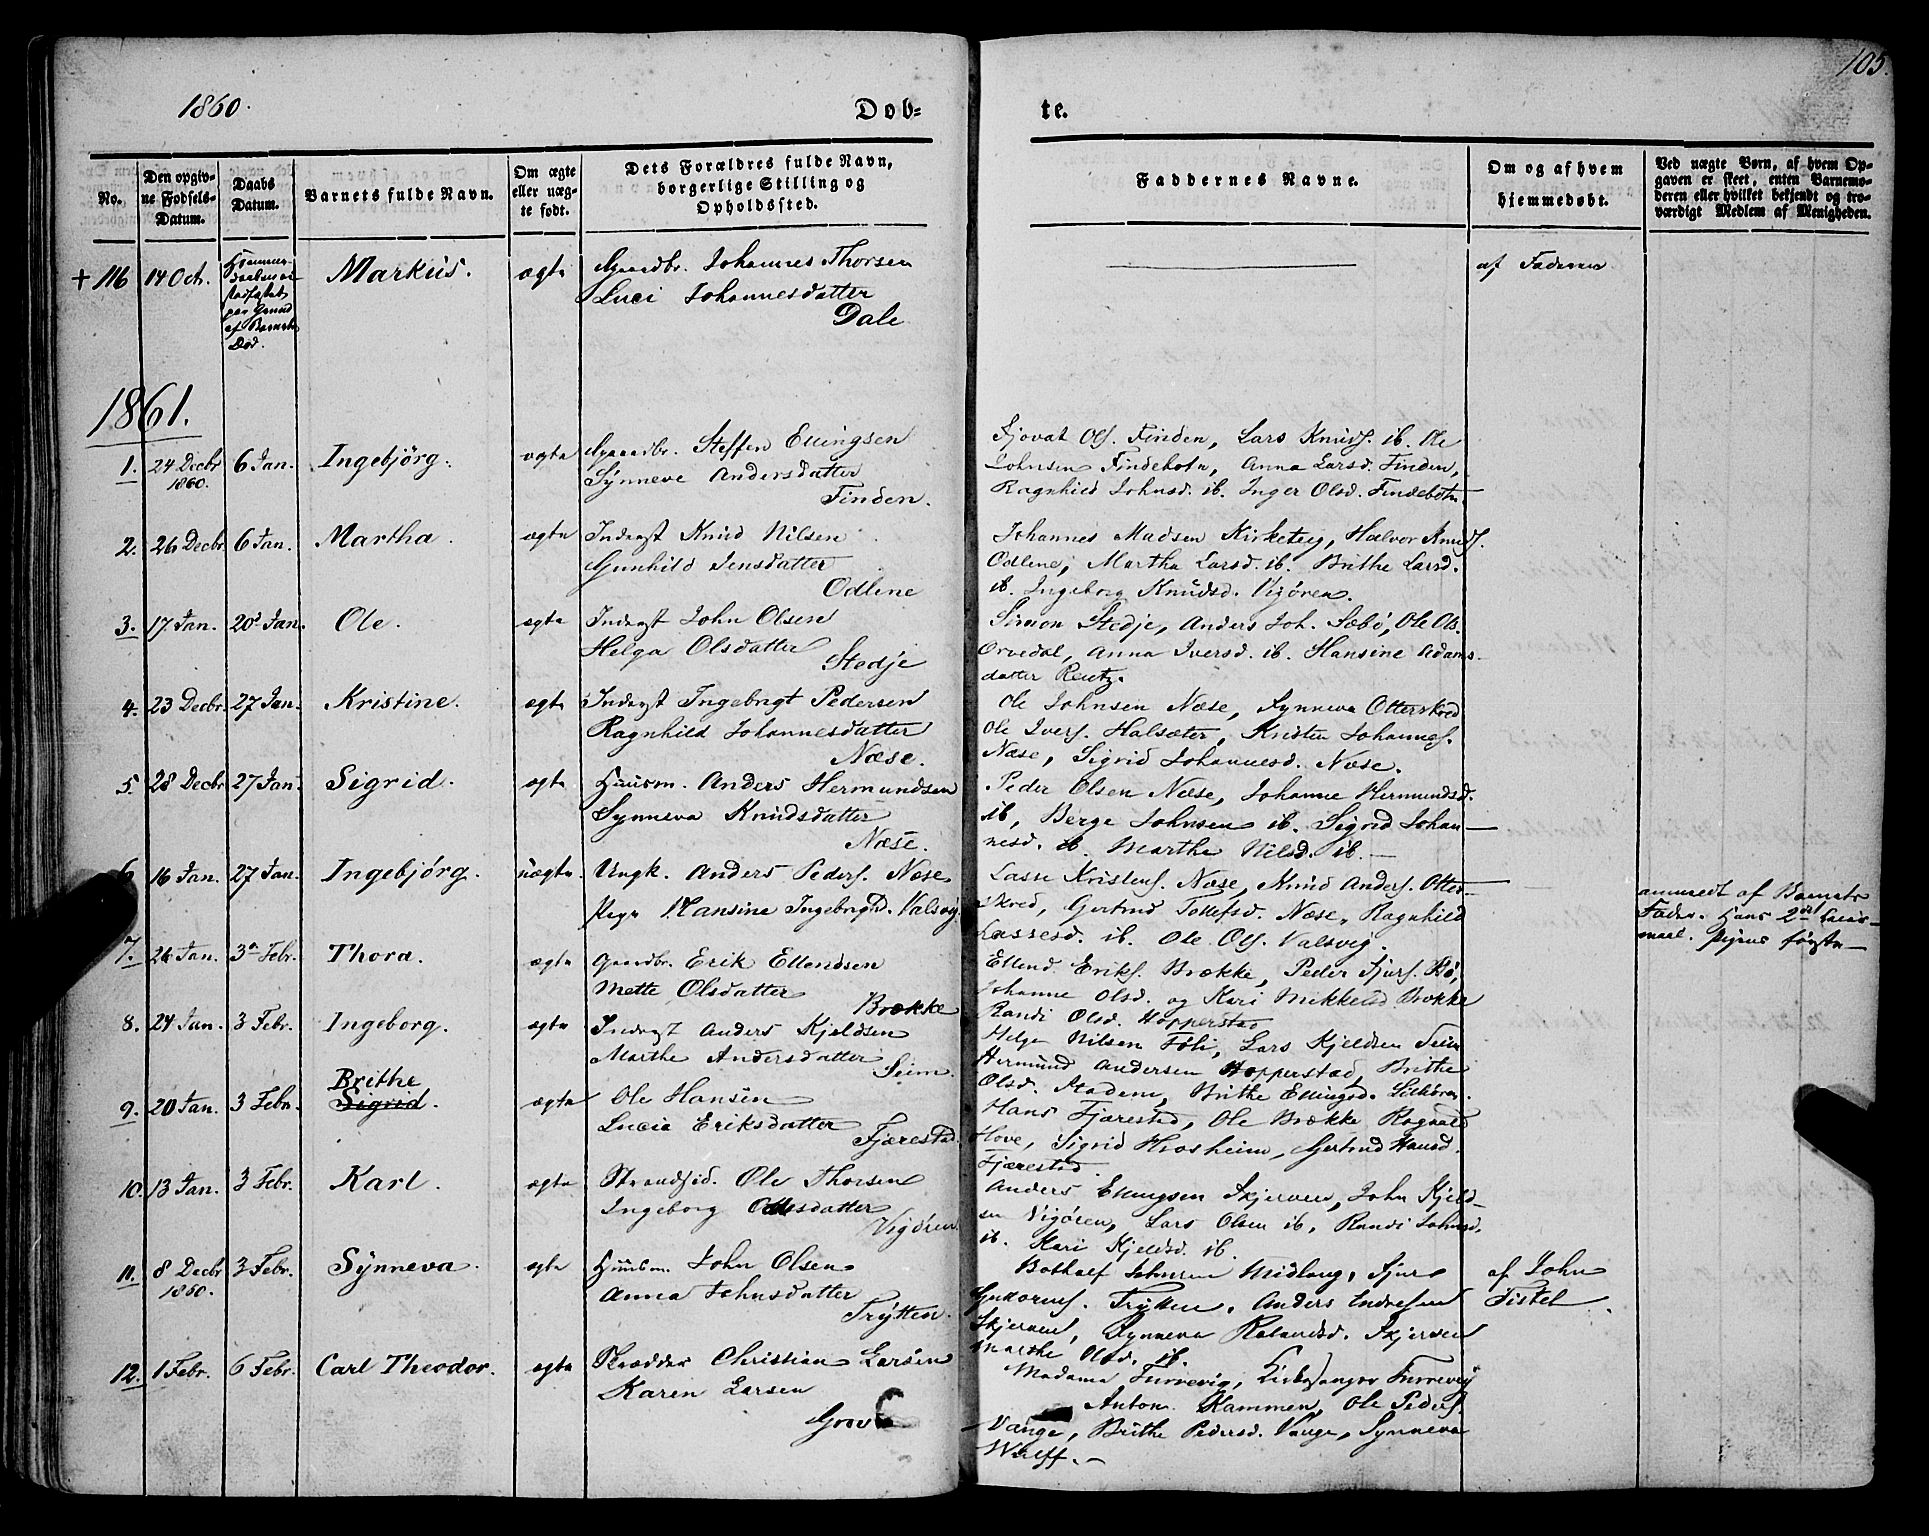 1860.
Døb-
te.
105.
No.
Den opgiv-
ne Fødsels-
Datum.
Daabs
Datum.
Barnets fulde Navn.
Om ægte
eller uæg-
te født.
Dets Forældres fulde Navn,
borgerlige Stilling og
Opholdssted.
Faddernes Navne.
Om og af hvem
hjemmedøbt.
Ved uægte Børn, af hvem Op-
gaven er skeet, enten Barnemo-
deren eller hvilket bekjendt og tro-
værdigt Medlem af Menigheden.
+ 116 14 Oct. Markus. ægte Gaardbr. Johannes Thorsen
Luci Johannesdatter
Dale
af Barnets
Død.
af Faderen
1861.
1. 24 Decbr 1860. 6 Jan. Ingebjörg. ægte Gaardbr. Steffen Ellingsen
Synneve Andersdatter
Finden.
Ols. Finden, Lars Knuds. ib. Ole
Johnsen Findebotn, Anna Larsd. Finden,
Ragnhild Johnsd. ib. Inger Olsd. Findebotn
2. 26 Decbr 6 Jan. Martha. ægte Inderst Knud Nilsen
Gunhild Jensdatter
Odlene
Johannes Madsen Kirketeig, Halvor Knuds.
Odlene, Martha Larsd. ib. Brithe Larsd.
ib. Ingeborg Knudsd. Vigören.
3. 17 Jan. 20 Jan. Ole. ægte Inderst John Olsen
Helga Olsdatter
Stedje
Simon Stedje, Anders Joh. Sæbö, Ole Ols.
Orvedal, Anna Iversd. ib. Hansine Adams-
datter Rentz.
4. 23 Decbr. 27 Jan. Kristine. ægte Inderst Ingebrigt Pedersen
Ragnhild Johannesdatter
Næse.
Ole Johnsen Næse, Synneva Otterskred
Ole Ivers. Halsæter, Kristen Johannes.
Næse, Sigrid Johannesd. Næse.
5. 28 Decbr 27 Jan. Sigrid. ægte Huusm. Anders Hermundsen
Synneva Knudsdatter
Næse.
Peder Olsen Næse, Johanne Hermundsd.
ib, Berge Johnsen ib. Sigrid Johan-
nesd. ib. Marthe Nilsd. ib.
6 16 Jan. 27 Jan. Ingebjörg. uægte. Ungk. Anders Peders. Næse
Pige Hansine Ingebrigtsd. Valsvig.
Lasse Kristens. Næse, Knud Anders. Otter-
skred, Gertrud Tollefsd. Næse, Ragnhild
Lassesd. ib. Ole Ols. Valsvig.
anmeldt af Barnets
Fader. Hans 2det Leier-
maal. Pigens første
7. 26 Jan. 3 Febr. Thora. ægte Gaardbr. Erik Ellendsen
Mette Olsdatter
Brække
Ellend Eriks. Brække, Peder Sjurs. Bö,
Johanne Olsd. og Kari Mikkelsd Brække
Randi Olsd. Hopperstad
8. 24 Jan. 3 Febr. Ingeborg. ægte Inderst Anders Kjeldsen
Marthe Andersdatter
Seim.
Helge Nilsen Föli, Lars Kjeldsen Seim
Hermund Andersen Hopperstad, Brithe
Olsd. Stadem, Brithe Ellingsd.
9. 20 Jan. 3 Febr. Brithe
Sigrid. ægte Ole Hansen
Lucie Eriksdatter
Fjærestad.
Hans Fjærestad, Ole Brække Ragnald
Hove, Sigrid Hrosheim, Gertrud Hansd.
Fjærestad.
10. 13 Jan. 3 Febr. Karl. ægte Strandsid. Ole Thorsen
Ingeborg datter
Vigören.
Anders Ellingsen Skjerven, John Kjeld-
sen Vigören, Lars Olsen ib, Randi Johnsd.
ib. Kari Kjeldsd. ib.
11. 8 Decbr 1860. 3 Febr. Synneva. ægte Huusm. John Olsen
Anna Johnsdatter
Trytten.
Botholf Johnsen Midlang, Sjur
Guttorms. Trytten, Anders Endresen
Skjerven, Synneva Rolandsd. Skjerven
Marthe Olsd. ib.
af John
Fistel.
12. 1 Febr. 6 Febr. Carl Theodor. ægte Skrædder Christian Larsen
Karen Larsen
Grov
Madama Turrevig, Kirkesanger Turrevig
Anton Kammen, Ole Peders.
Vange, Brithe Pedersd. Vange, Synneva
Wulff.